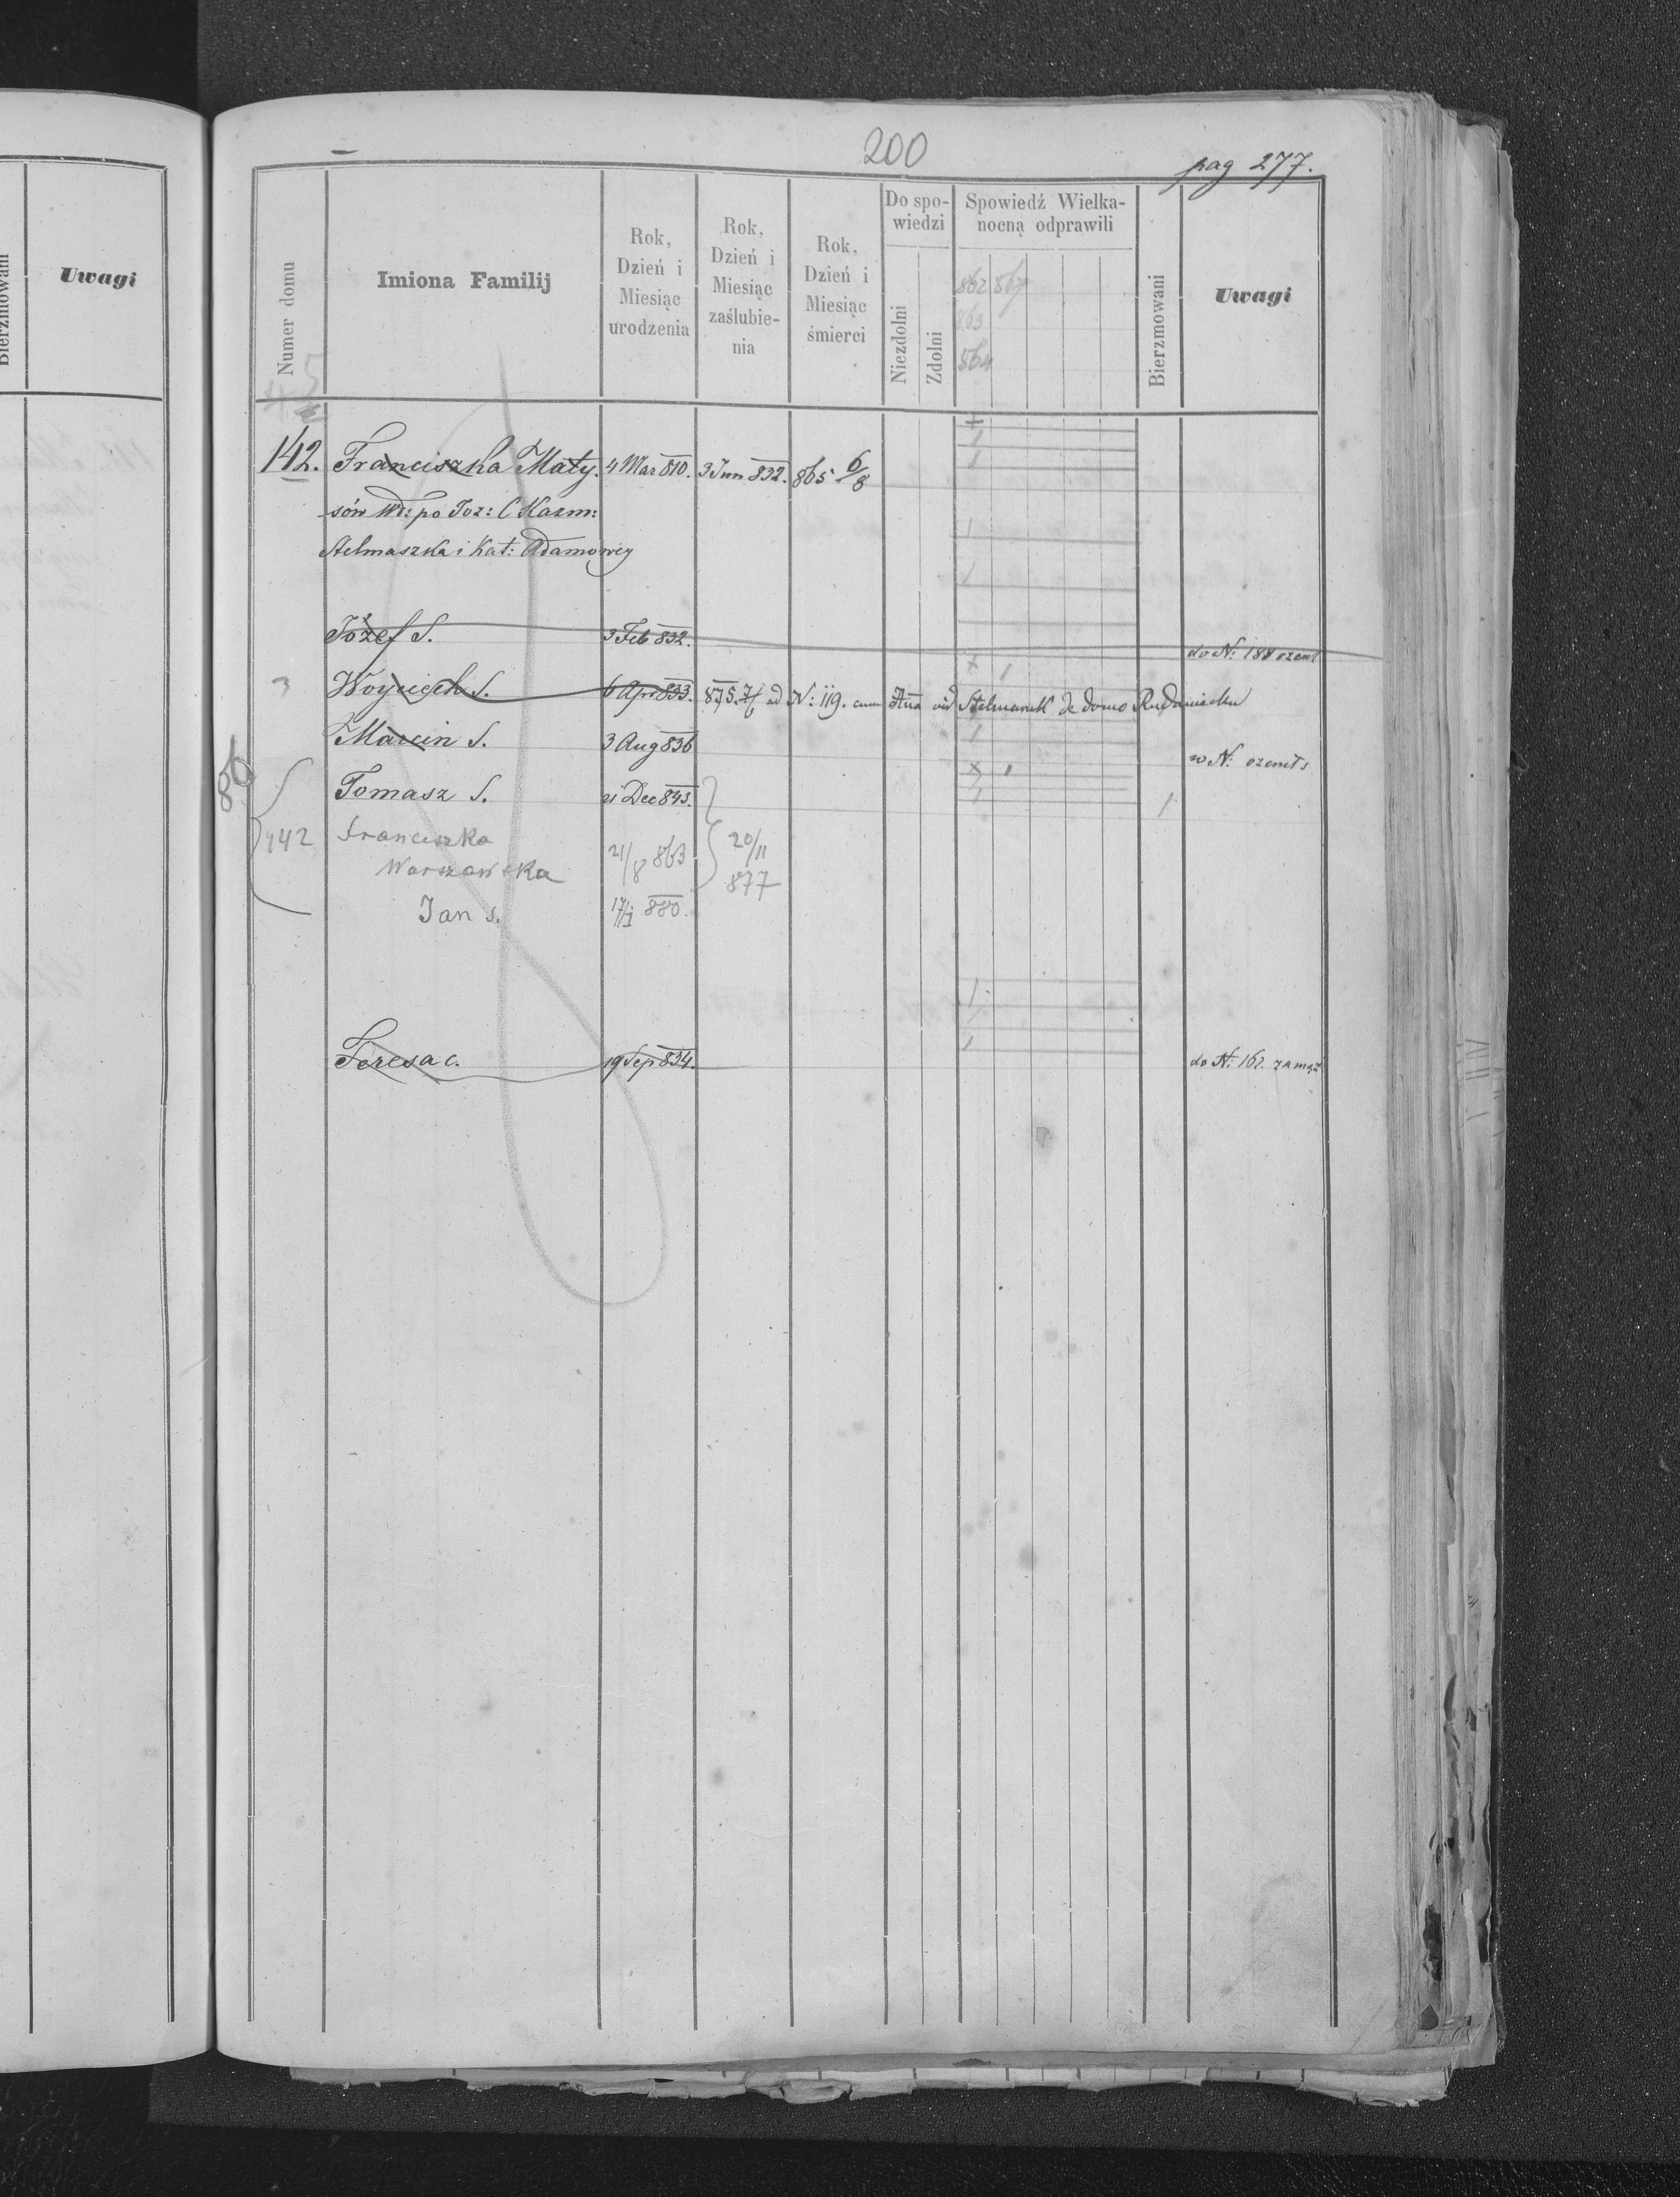 Bierzmowani
Uwagi
200
pag 277.
Numer domu
Imiona Familij
Rok,
Dzień i
Miesiąc
urodzenia
Rok,
Dzień i
Miesiąc
zaślubie-
nia
Rok,
Dzień i
Miesiąc
śmierci
Do spo-
wiedzi
Niezdolni
Zdolni
Spowiedź Wielka-
nocną odprawili
862 867
863
864
Bierzmowani
Uwagi
142. Franciszka Maty. 4 Mar 810. 3 Jun 832. 865 6/8
sów Wd: po Joz: C Kazm:
Stelmaszka i Kat: Adamowey
Józef S. 3 Feb 832. do N: 188 ozenł
Woyciech S. 6 Apr 833. 875. ad N: 119. cum Anna vid Stelmaszk de domo
Marcin S. 3 Aug 836 w N: ozenił s
86
Tomasz S. 21 Dec 843.
142 Franciszka
Warszawska 21/8 863 20/11 877
Jan s. 17/1 880.
Teresa c. 19 Sep 834. do N: 162. zamąz